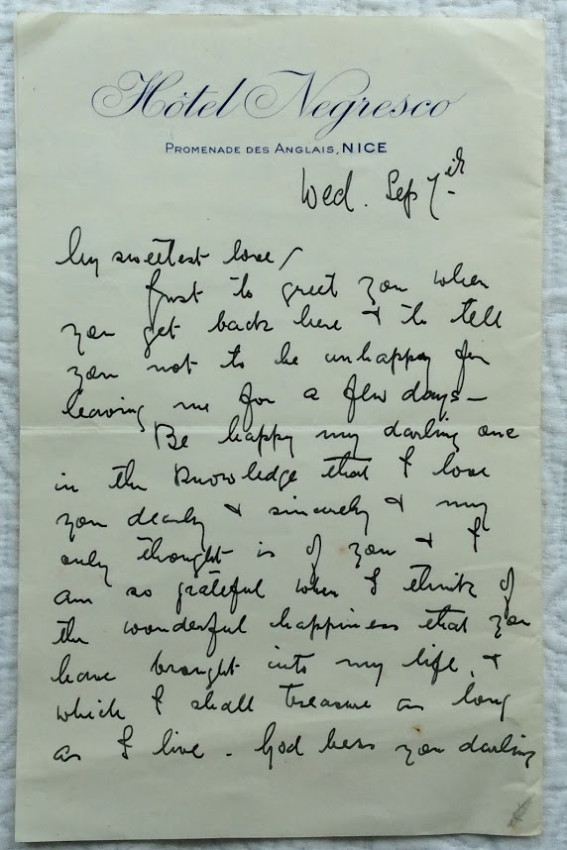 Hôtel Negresco
PROMENADE DES ANGLAIS, NICE
Wed. Sep 7th
My sweetest love/
Just to greet you when
you get back here & to tell
you not to be unhappy for
leaving me for a few days—
Be happy my darling one
in the knowledge that I love
you dearly & sincerely & my
only thought is of you & I
am so grateful when I think of
the wonderful happiness that you
have brought into my life, &
which I shall treasure as long
as I live. God bless you darling